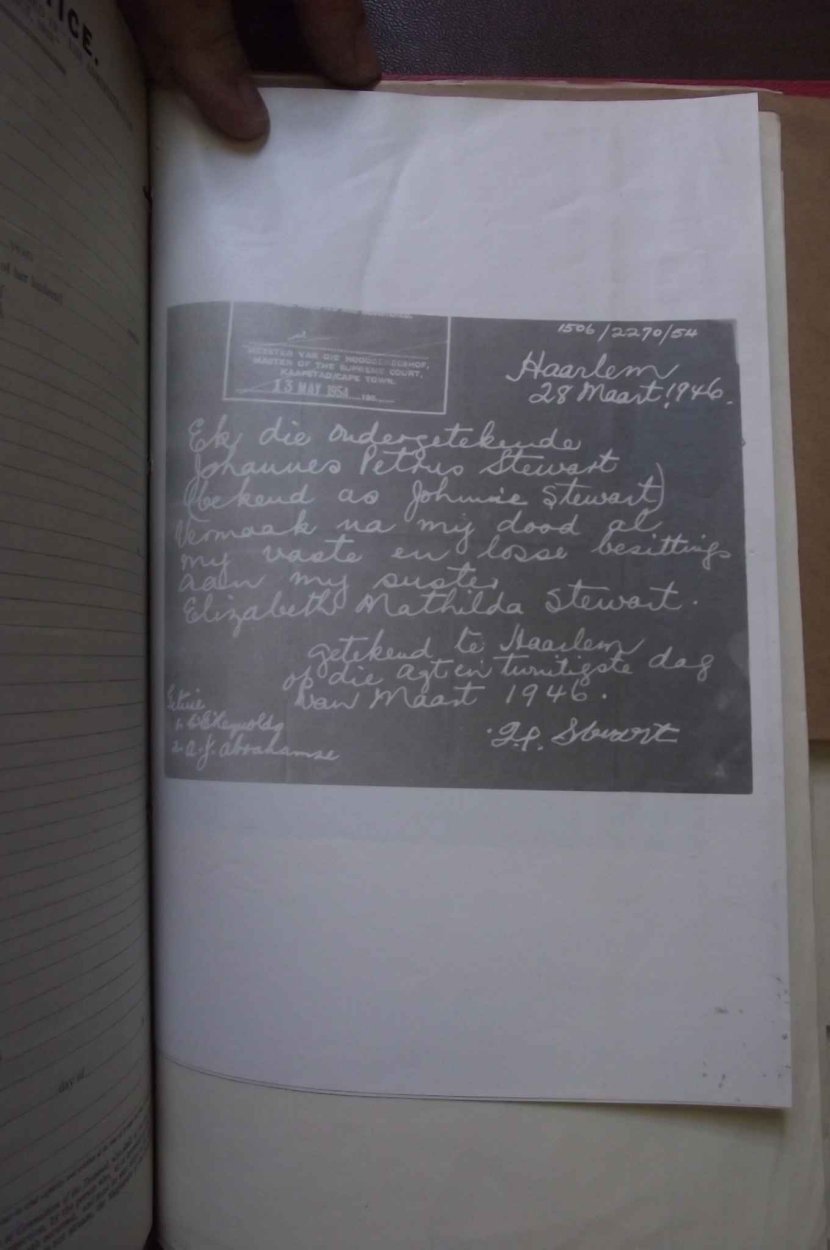 TICE.
of her husband
1506/2270/54
MEESTER VAN DIE HOOGGEREGSHOF,
MASTER OF THE SUPREME COURT,
KAAPSTAD/CAPE TOWN.
13 MAY 1954
Haarlem
28 Maart 1946.
Ek die ondergetekende
Johannes Petrus Stewart
(bekend as Johnnie Stewart)
Vermaak na my dood al
my vaste en losse besittings
aan my suster
Elizabeth Mathilda Stewart.
getekend te Haarlem
op die agt en twintigste dag
van Maart 1946.
J.P. Stewart
A.J. Abrahamse
day of